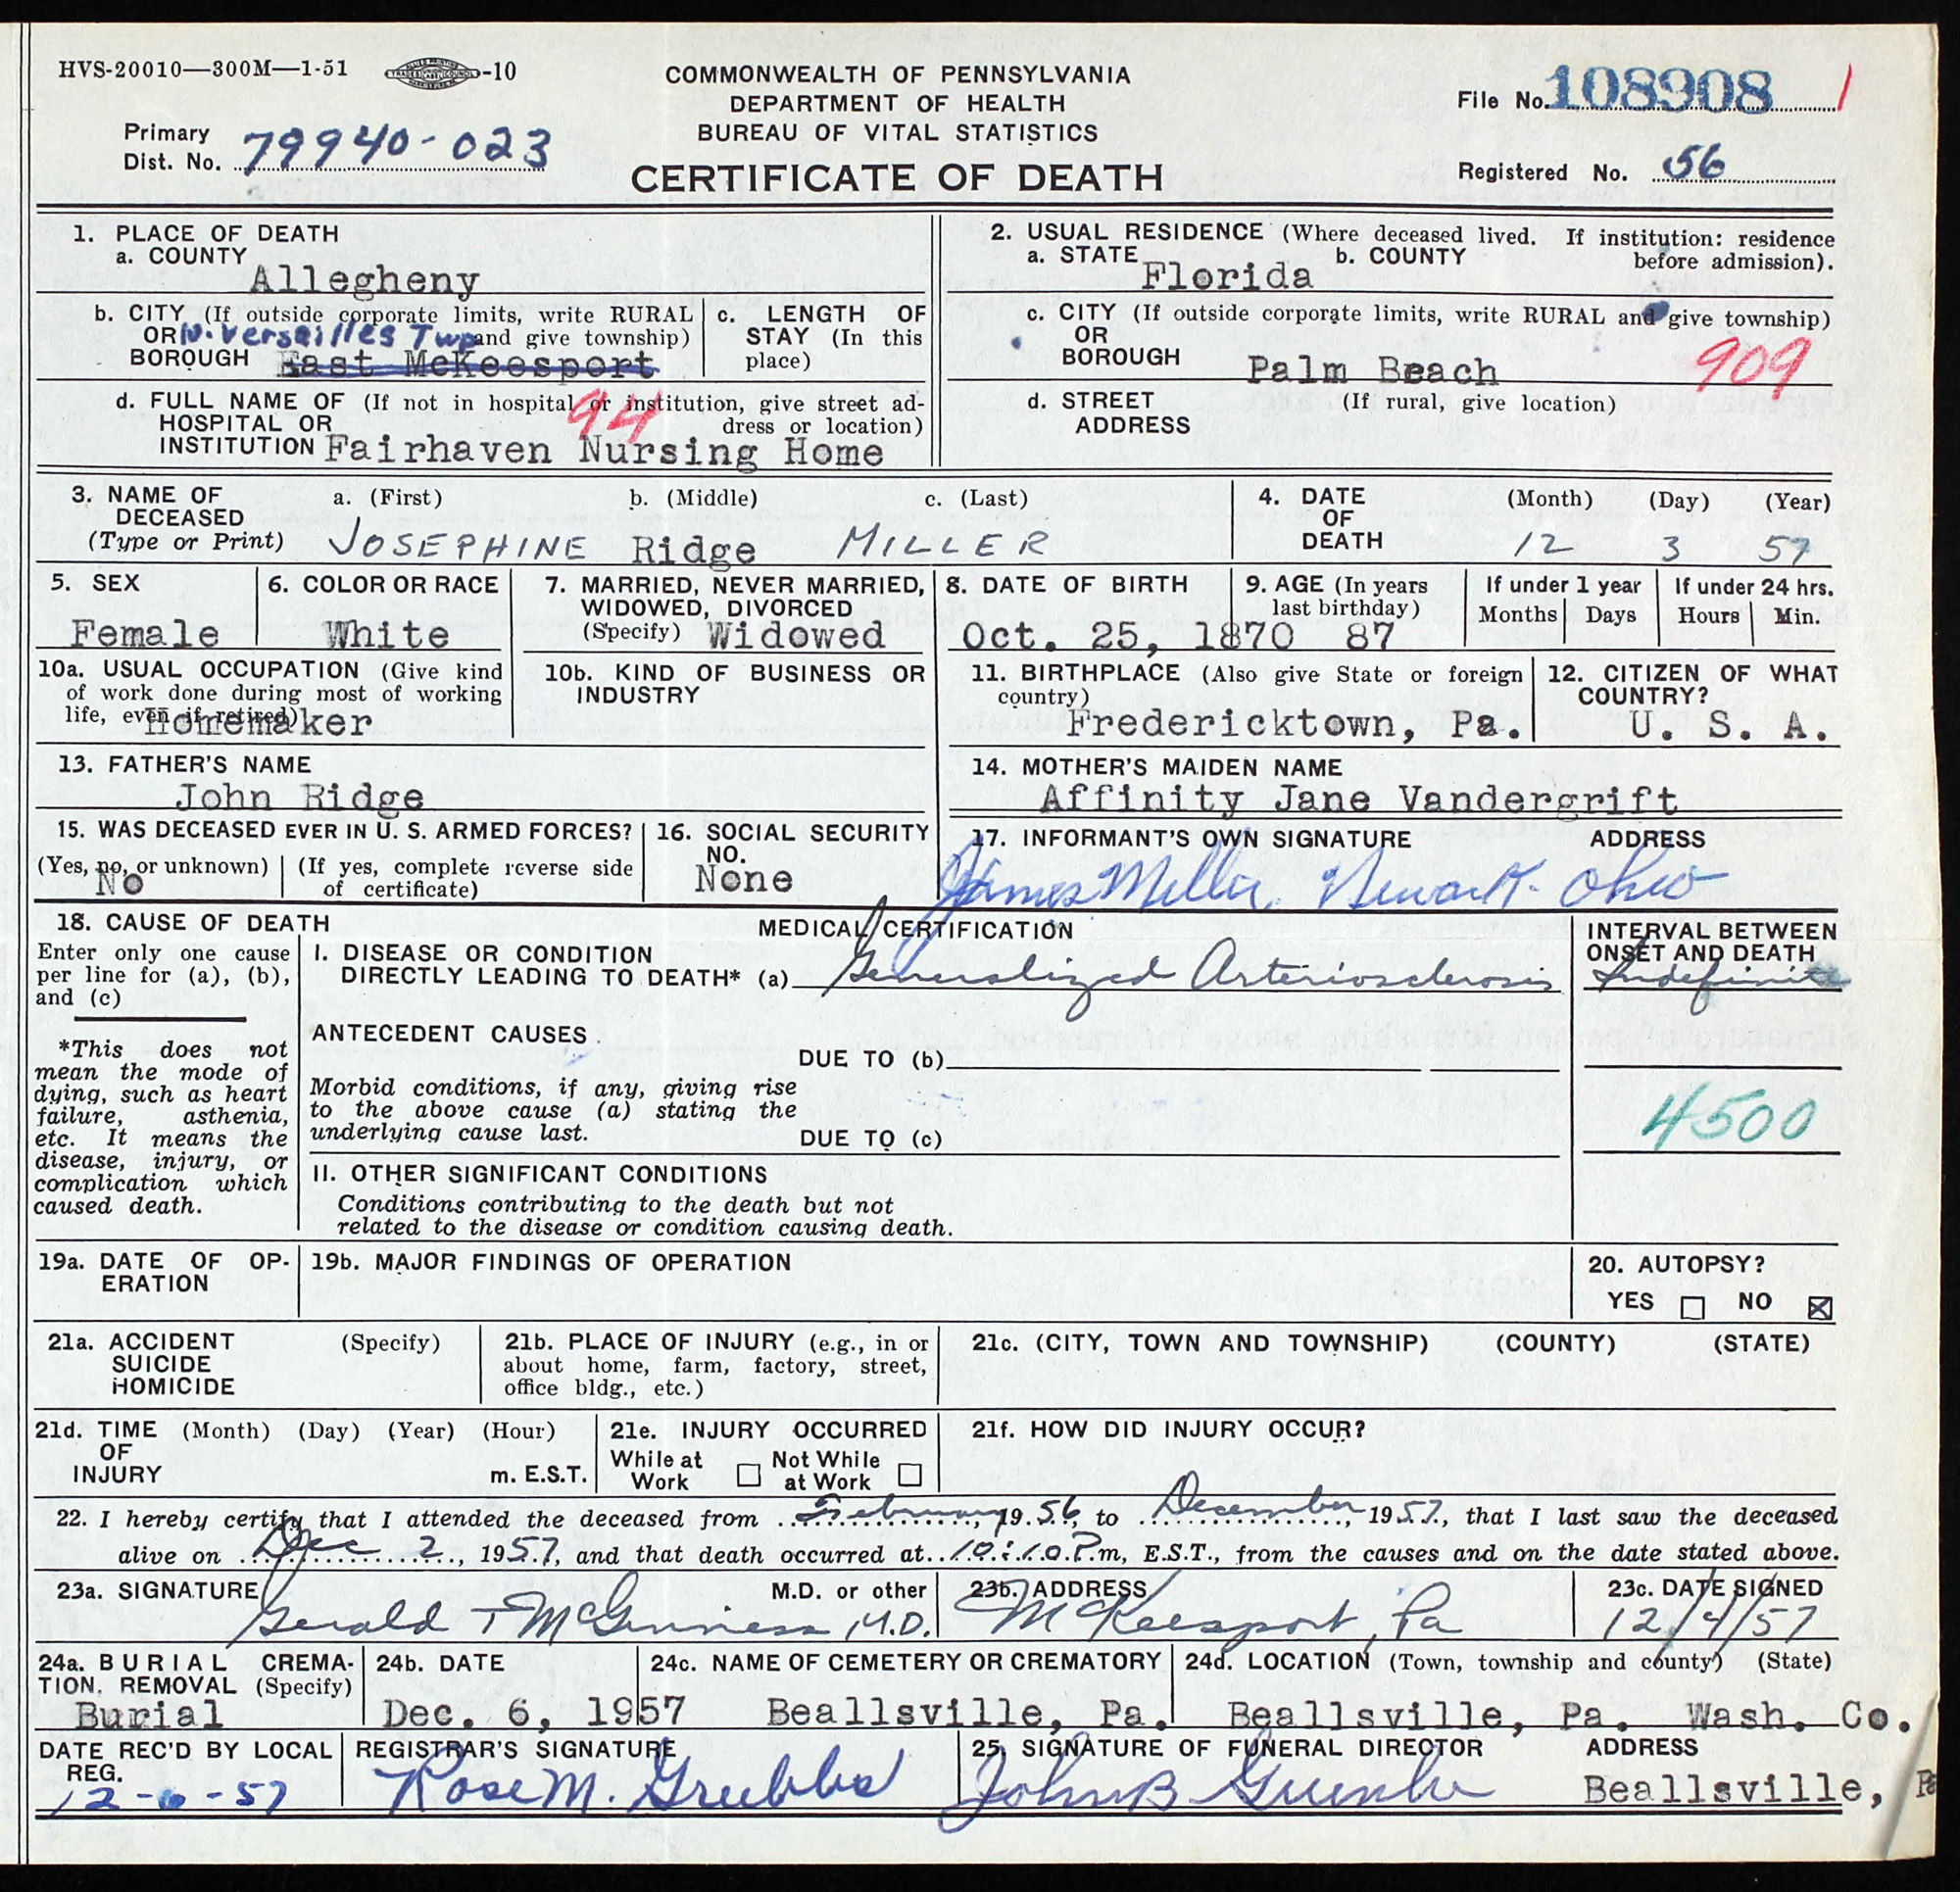 HVS-20010—300M—1-51 -10
COMMONWEALTH OF PENNSYLVANIA
DEPARTMENT OF HEALTH
BUREAU OF VITAL STATISTICS
CERTIFICATE OF DEATH
File No. 108908 1
Primary
Dist. No. 79940-023
Registered No. 56
1. PLACE OF DEATH
a. COUNTY
Allegheny
2. USUAL RESIDENCE (Where deceased lived. If institution: residence
before admission).
a. STATE Florida b. COUNTY
b. CITY (If outside corporate limits, write RURAL
OR N. Versailles Twp and give township)
BOROUGH East McKeesport
c. LENGTH OF
STAY (In this
place)
c. CITY (If outside corporate limits, write RURAL and give township)
OR
BOROUGH Palm Beach 909
d. FULL NAME OF (If not in hospital or institution, give street ad-
HOSPITAL OR 94 dress or location)
INSTITUTION Fairhaven Nursing Home
d. STREET (If rural, give location)
ADDRESS
3. NAME OF a. (First) b. (Middle) c. (Last)
DECEASED
(Type or Print) JOSEPHINE Ridge MILLER
4. DATE (Month) (Day) (Year)
OF
DEATH 12 3 57
5. SEX
Female
6. COLOR OR RACE
White
7. MARRIED, NEVER MARRIED,
WIDOWED, DIVORCED
(Specify) Widowed
8. DATE OF BIRTH
Oct. 25, 1870
9. AGE (In years
last birthday)
87
If under 1 year
Months Days
If under 24 hrs.
Hours Min.
10a. USUAL OCCUPATION (Give kind
of work done during most of working
life, even if retired)
Homemaker
10b. KIND OF BUSINESS OR
INDUSTRY
11. BIRTHPLACE (Also give State or foreign
country)
Fredericktown, Pa.
12. CITIZEN OF WHAT
COUNTRY?
U. S. A.
13. FATHER'S NAME
John Ridge
14. MOTHER'S MAIDEN NAME
Affinity Jane Vandergrift
15. WAS DECEASED EVER IN U. S. ARMED FORCES?
(Yes, no, or unknown) (If yes, complete reverse side
of certificate)
No
16. SOCIAL SECURITY
NO.
None
17. INFORMANT'S OWN SIGNATURE ADDRESS
James Miller, Newark - Ohio
18. CAUSE OF DEATH
Enter only one cause
per line for (a), (b),
and (c)
*This does not
mean the mode of
dying, such as heart
failure, asthenia,
etc. It means the
disease, injury, or
complication which
caused death.
MEDICAL CERTIFICATION
I. DISEASE OR CONDITION
DIRECTLY LEADING TO DEATH* (a) Generalized Arteriosclerosis
ANTECEDENT CAUSES
DUE TO (b)
Morbid conditions, if any, giving rise
to the above cause (a) stating the
underlying cause last.
DUE TO (c)
II. OTHER SIGNIFICANT CONDITIONS
Conditions contributing to the death but not
related to the disease or condition causing death.
INTERVAL BETWEEN
ONSET AND DEATH
Indefinite
4500
19a. DATE OF OP-
ERATION
19b. MAJOR FINDINGS OF OPERATION
20. AUTOPSY?
YES ☐ NO ☒
21a. ACCIDENT (Specify)
SUICIDE
HOMICIDE
21b. PLACE OF INJURY (e.g., in or
about home, farm, factory, street,
office bldg., etc.)
21c. (CITY, TOWN AND TOWNSHIP) (COUNTY) (STATE)
21d. TIME (Month) (Day) (Year) (Hour)
OF
INJURY m. E.S.T.
21e. INJURY OCCURRED
While at Work ☐ Not While at Work ☐
21f. HOW DID INJURY OCCUR?
22. I hereby certify that I attended the deceased from February, 1956, to December, 1957, that I last saw the deceased
alive on Dec 2, 1957, and that death occurred at 10:10 P.m, E.S.T., from the causes and on the date stated above.
23a. SIGNATURE M.D. or other
Gerald T McGinness M.D.
23b. ADDRESS
McKeesport, Pa
23c. DATE SIGNED
12/4/57
24a. BURIAL CREMA-
TION, REMOVAL (Specify)
Burial
24b. DATE
Dec. 6, 1957
24c. NAME OF CEMETERY OR CREMATORY
Beallsville, Pa.
24d. LOCATION (Town, township and county) (State)
Beallsville, Pa. Wash. Co.
DATE REC'D BY LOCAL
REG.
12-6-57
REGISTRAR'S SIGNATURE
Rose M. Grubbs
25. SIGNATURE OF FUNERAL DIRECTOR ADDRESS
John B Beallsville, Pa